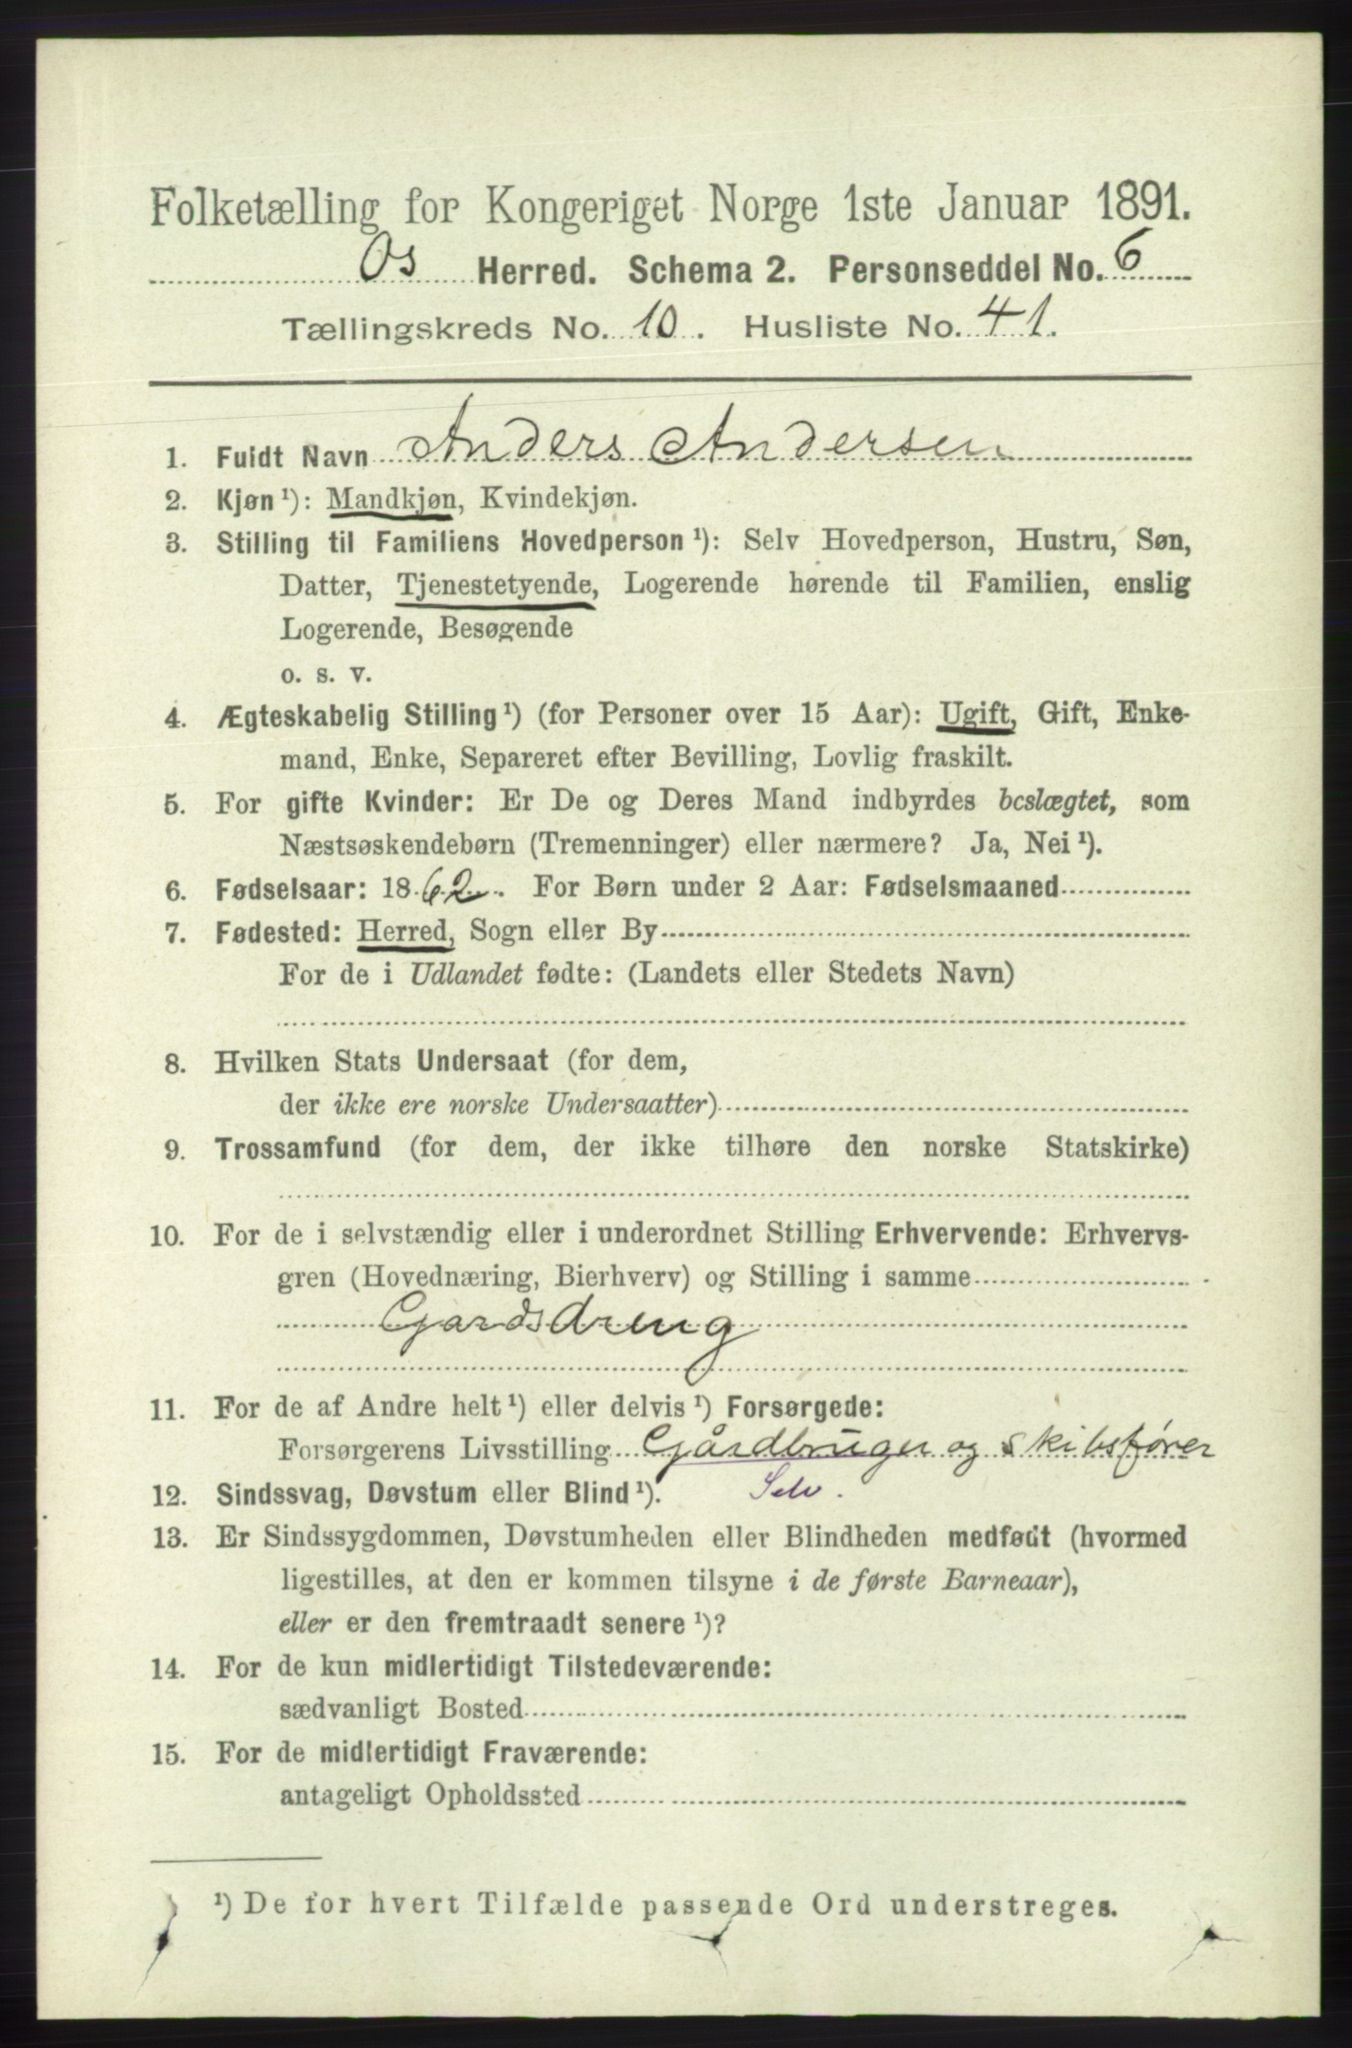 Folketælling for Kongeriget Norge 1ste Januar 1891.
Os Herred. Schema 2. Personseddel No. 6
Tællingskreds No. 10. Husliste No. 41.
1. Fuldt Navn Anders Andersen
2. Kjøn ¹): Mandkjøn, Kvindekjøn.
3. Stilling til Familiens Hovedperson ¹): Selv Hovedperson, Hustru, Søn,
Datter, Tjenestetyende, Logerende hørende til Familien, enslig
Logerende, Besøgende
o. s. v.
4. Ægteskabelig Stilling ¹) (for Personer over 15 Aar): Ugift, Gift, Enke-
mand, Enke, Separeret efter Bevilling, Lovlig fraskilt.
5. For gifte Kvinder: Er De og Deres Mand indbyrdes beslægtet, som
Næstsøskendebørn (Tremenninger) eller nærmere? Ja, Nei ¹).
6. Fødselsaar: 1862. For Børn under 2 Aar: Fødselsmaaned
7. Fødested: Herred, Sogn eller By
For de i Udlandet fødte: (Landets eller Stedets Navn)
8. Hvilken Stats Undersaat (for dem,
der ikke ere norske Undersaatter)
9. Trossamfund (for dem, der ikke tilhøre den norske Statskirke)
10. For de i selvstændig eller i underordnet Stilling Erhvervende: Erhvervs-
gren (Hovednæring, Bierhverv) og Stilling i samme
Gardsdreng
11. For de af Andre helt ¹) eller delvis ¹) Forsørgede:
Forsørgerens Livsstilling Gårdbruger og skibsfører
12. Sindssvag, Døvstum eller Blind ¹). Selv.
13. Er Sindssygdommen, Døvstumheden eller Blindheden medfødt (hvormed
ligestilles, at den er kommen tilsyne i de første Barneaar),
eller er den fremtraadt senere ¹)?
14. For de kun midlertidigt Tilstedeværende:
sædvanligt Bosted
15. For de midlertidigt Fraværende:
antageligt Opholdssted
¹) De for hvert Tilfælde passende Ord understreges.